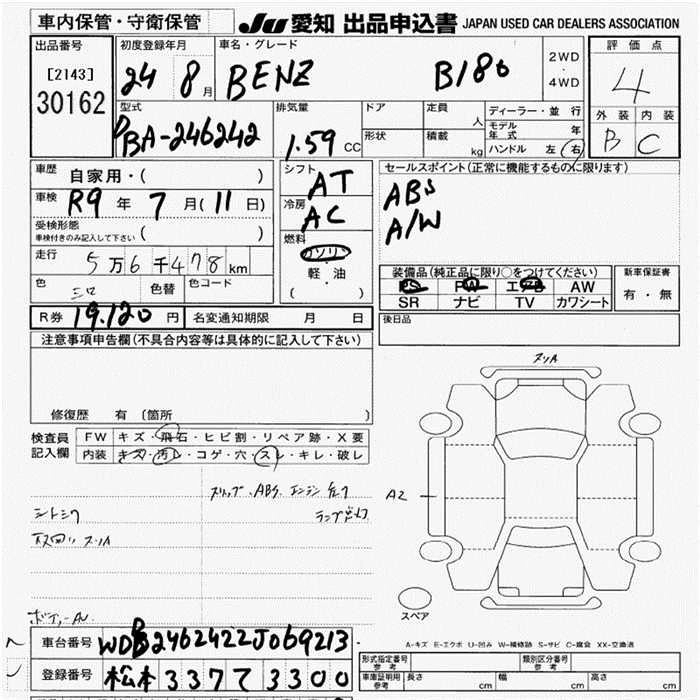 車内保管・守衛保管
JU 愛知 出品申込書 JAPAN USED CAR DEALERS ASSOCIATION
出品番号
[2143]
30162
初度登録年月
24 8 月
車名・グレード
BENZ B180
2WD
・
4WD
評価点
4
外装 内装
B C
型式
DBA-246242
排気量
1.59 CC
ドア
定員
人
形状
積載
kg
ディーラー・並行
モデル年式 年
ハンドル 左 右
車歴
自家用・( )
車検 R9 年 7 月 (11 日)
受検形態
車検付きのみ記入して下さい ( )
走行 5万6千478km
色
シロ
色替
色コード
シフト
AT
冷房
AC
燃料
ガソリン
軽・油
( )
セールスポイント(正常に機能するものに限ります)
ABS
A/W
装備品(純正品に限り○をつけてください)
PS PW エアB AW
SR ナビ TV カワシート
新車保証書
有・無
後日品
R券 19,120 円
名変通知期限 月 日
注意事項申告欄(不具合内容等は具体的に記入して下さい)
修復歴 有 〔箇所 〕
検査員記入欄
FW キズ・飛石・ヒビ割・リペア跡・X要
内装 キズ・汚レ・コゲ・穴・スレ・キレ・破レ
スリップ、ABS、エンジンチェック
ランプ点灯
シトミウ
スリA
A2
スリA
スペア
A-キズ E-エクボ U-凹み W-補修跡 S-サビ C-腐食 XX-交換済
車台番号 WDD2462422J069213
登録番号 松本 337 て 3300
形式指定番号
参考
類別区分番号
参考
車庫証明用
参考
長さ cm
幅 cm
高さ cm